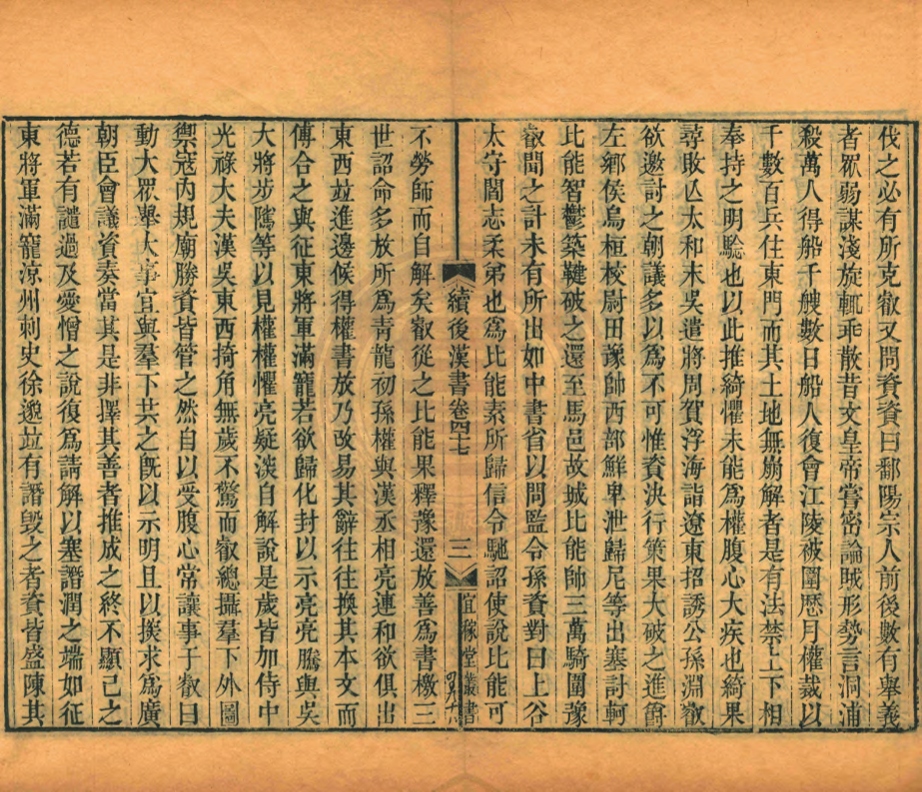 伐之必有所克叡又問資資曰鄱陽宗人前後數有舉義
者眾弱謀淺旋輒乖散昔文皇帝嘗密論賊形勢言洞浦
殺萬人得船千艘數日船人復會江陵被圍歷月權裁以
千數百兵住東門而其土地無崩解者是有法禁上下相
奉持之明驗也以此推綺懼未能為權腹心大疾也綺果
尋敗亾太和末吳遣將周賀浮海詣遼東招誘公孫淵叡
欲邀討之朝議多以為不可惟資決行策果大破之進爵
左鄉侯烏桓校尉田豫帥西部鮮卑泄歸尼等出塞討軻
比能智鬱築鞬破之還至馬邑故城比能帥三萬騎圍豫
叡聞之計未有所出如中書省以問監令孫資對曰上谷
太守閻志柔弟也為比能素所歸信令馳詔使說比能可
續後漢書卷四十七 三 宜稼堂叢書
不勞師而自解矣叡從之比能果釋豫還放善為書檄三
世詔命多放所為青龍初孫權與漢丞相亮連和欲俱出
東西竝進邊候得權書放乃改易其辭往往換其本文而
傅合之與征東將軍滿寵若欲歸化封以示亮亮騰與吳
大將步隲等以見權權懼亮疑深自解說是歲皆加侍中
光祿大夫漢吳東西掎角無歲不驚而叡總攝羣下外圖
禦寇內規廟勝資皆管之然自以受腹心常讓事于叡曰
動大眾舉大事宜與羣下共之既以示明且以挨求為廣
朝臣會議資奏當其是非擇其善者推成之終不顯己之
德若有譴過及愛憎之說復為請解以塞譖潤之端如征
東將軍滿寵涼州刺史徐邈竝有譖毀之者資皆盛陳其